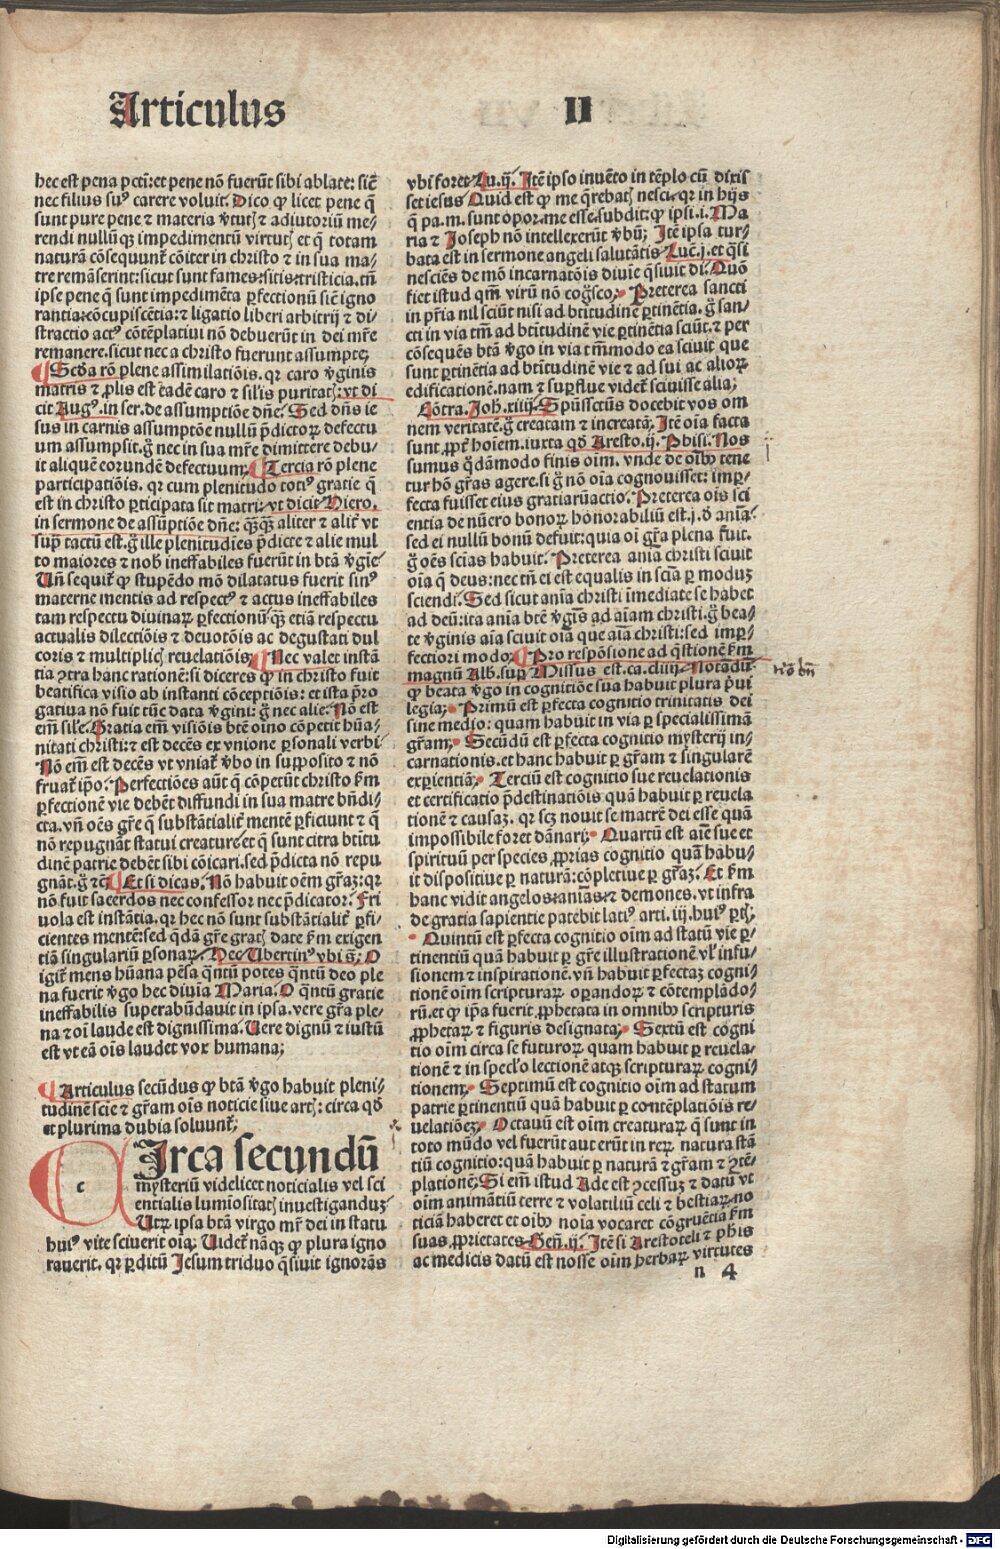 Articulus
II
hec est pena pctī: et pene nō fuerūt sibi ablate: sic̄
nec filius suꝰ carere voluit. Dico ꝙ licet pene q̄
sunt pure pene ⁊ materia v̄tutꝭ ⁊ adiutoriū me⸗
rendi nullūqꝫ impedimentū virtutꝭ et q̄ totam
naturā cōsequunt᷑ cōiter in christo ⁊ in sua ma⸗
tre remāserint: sicut sunt fames: sitis: tristicia. tn̄
ipse pene q̄ sunt impedimēta ꝑfectionū sic̄ igno
rantia: cōcupiscētia: ⁊ ligatio liberi arbitrij ⁊ di⸗
stractio actꝰ cōtēplatiui nō debuerūt in dei mr̄e
remanere. sicut nec a christo fuerunt assumpte;
¶ Scd̄a rō plene assimilatiōis. qr caro v̄ginis
matris ⁊ ꝓlis est eadē caro ⁊ sil̄is puritatꝭ: vt di
cit Augꝰ. in ser. de assumptiōe dn̄e. Sed dn̄s ie
sus in carnis assumptōe nullū p̄dictoꝝ defectu
um assumpsit. g̊ nec in sua mr̄e dimittere debu⸗
it aliquē eorundē defectuum; ¶ Tercia rō plene
participatiōis. qr cum plenitudo totiꝰ gratie q̄
est in christo ꝑticipata sit matri: vt dicit Hiero.
in sermone de assūptiōe dn̄e: qꝫqꝫ aliter ⁊ alit᷑ vt
supͣ tactū est. g̊ ille plenitudies p̄dicte ⁊ alie mul
to maiores ⁊ nobꝭ ineffabiles fuerūt in btā v̄gīe
Un̄ sequit᷑ ꝙ stupēdo mō dilatatus fuerit sinꝰ
materne mentis ad respectꝰ ⁊ actus ineffabiles
tam respectu diuinaꝝ ꝑfectionū qꝫ etiā respectu
actualis dilectiōis ⁊ deuotōis ac degustati dul
coris ⁊ multiplicꝭ reuelatiōis; ¶ Nec valet instā
tia ꝯtra hanc rationē: si diceres ꝙ in christo fuit
beatifica visio ab instanti cōceptiōis: et ista p̄ro
gatiua nō fuit tūc data v̄gini: g̊ nec alie. Nō est
em̄ sil̄e. Gratia em̄ visiōis btē oīno cōpetit hūa⸗
nitati christi: ⁊ est decēs ex vnione ꝑsonali verbi
Nō em̄ est decēs vt vniat᷑ v̄bo in supposito ⁊ nō
fruat᷑ ip̄o. Perfectiōes aūt q̄ cōpetūt christo k̄m
ꝑfectionē vie debēt diffundi in sua matre bn̄di⸗
cta. vn̄ oēs gr̄e q̄ substātialit᷑ mentē ꝑficiunt ⁊ q̄
nō repugnāt statui creature: et q̄ sunt citra btītu
dinē patrie debēt sibi cōicari. sed p̄dicta nō repu
gnāt. g̊ ⁊c̄. ¶ Et si dicas. Nō habuit oēm gr̄aꝫ: qr
nō fuit sacerdos nec confessor nec p̄dicator. Fri
uola est instātia. qr hec nō sunt substātialit᷑ ꝑfi⸗
cientes mentē: sed q̄dā gr̄e gratꝭ date k̄m exigen
tiā singulariū ꝑsonaꝝ. Hec Ubertinꝰ vbi s̄. O
igit᷑ mens hūana pēsa qn̄tū potes qn̄tū deo ple
na fuerit v̄go hec diuia Maria. O qn̄tū gratie
ineffabilis superabūdauit in ipsa. vere gr̄a ple⸗
na ⁊ oī laude est dignissima. Uere dignū ⁊ iustū
est vt eā oīs laudet vox humana;
¶ Articulus secūdus ꝙ btā v̄go habuit pleni⸗
tudinē scīe ⁊ gr̄am oīs noticie siue artꝭ: circa qd̄
et plurima dubia soluunt᷑;
c
Irca secundū
mysteriū videlicet noticialis vel sci
entialis lumiositatꝭ inuestiganduꝫ
Utꝝ ipsa btā virgo mr̄ dei in statu
huiꝰ vite sciuerit oīa; Uidet᷑ nāqꝫ ꝙ plura igno
rauerit. qr ꝑditū Jesum triduo q̄siuit ignorās
vbi foret. Lu. ij. Itē ipso inuēto in tēplo cū dixis
set iesus Quid est ꝙ me q̄rebatꝭ nesci. qr in hijs
q̄ pa. m. sunt opor. me esse. subdit: ꝙ ipsi. i. Ma
ria ⁊ Joseph nō intellexerūt v̄bū; Itē ipsa tur⸗
bata est in sermone angeli salutātis Luc̄. j. et q̄si
nesciēs de mō incarnatōis diuie q̄siuit di. Quō
fiet istud qm̄ virū nō cog̊sco; Preterea sancti
in pr̄ia nil sciūt nisi ad btītudinē ꝑtinētia. g̊ san⸗
cti in via tm̄ ad btītudinē vie ꝑtinētia sciūt. ⁊ per
cōsequēs btā v̄go in via tm̄modo ea sciuit que
sunt ꝑtinētia ad btītudinē vie ⁊ ad sui ac alioꝝ
edificationē. nam ⁊ suꝑflue videt᷑ sciuisse alia;
Cōtra. Joh̄. xiiij. Sp̄ussctūs docebit vos om
nem veritatē. g̊ creatam ⁊ increatā; Itē oīa facta
sunt ꝓpt᷑ hoīem. iuxta qd̄ Aresto. ij. Phisi. Nos
sumus q̄dāmodo finis oīm. vnde de oībꝫ tene
tur hō gr̄as agere. si g̊ nō oīa cognouisset: imꝑ⸗
fecta fuisset eius gratiaruactio. Preterea oīs sci
entia de nūero bonoꝝ honorabiliū est. j. d̄ aniā.
sed ei nullū bonū defuit: quia oī gr̄a plena fuit.
g̊ oēs scīas habuit. Preterea ania christi sciuit
oīa q̄ deus: nec tn̄ ei est equalis in scīa ꝑ moduꝫ
sciendi. Sed sicut anīa christi īmediate se habet
ad deū: ita anīa btē v̄gīs ad aīam christi. g̊ bea⸗
te v̄ginis aīa sciuit oīa que aīa christi: sed imꝑ⸗
fectiori modo; ¶ Pro respōsione ad q̄stionē k̄m
magnū Alb. suꝑ Missus est. ca. cliij. Notādū
ꝙ beata v̄go in cognitiōe sua habuit plura p̄ui
legia; Primū est ꝑfecta cognitio trinitatis dei
sine medio: quam habuit in via ꝑ specialissimā
gr̄am; Secūdū est ꝑfecta cognitio mysterij in⸗
carnationis. et hanc habuit ꝑ gr̄am ⁊ singularē
exꝑientiā; Terciū est cognitio sue reuelationis
et certificatio p̄destinatiōis quā habuit ꝑ reuela
tionē ⁊ causaꝫ. qr scꝫ nouit se matrē dei esse quā
impossibile foret dānari; Quartū est aīe sue et
spirituū per species ꝓprias cognitio quā habu⸗
it dispositiue ꝑ naturā: cōpletiue ꝑ gr̄aꝫ. Et k̄m
hanc vidit angelos: aniās: ⁊ demones. vt infra
de gratia sapientie patebit latiꝰ arti. iij. huiꝰ ꝑtꝭ;
Quintū est ꝑfecta cognitio oīm ad statū vie ꝑ⸗
tinentiū quā habuit ꝑ gr̄e illustrationē vl̓ infu⸗
sionem ⁊ inspirationē. vn̄ habuit ꝑfectaꝫ cogni⸗
tionē oīm scripturaꝝ oꝑandoꝝ ⁊ cōtemplādo⸗
rū. et ꝙ ip̄a fuerit ꝓphetata in omnibꝫ scripturis
ꝓphetaꝝ ⁊ figuris designata; Sextū est cogni
tio oīm circa se futuroꝝ quam habuit ꝑ reuela⸗
tionē ⁊ in specl̓o lectionē atqꝫ scripturaꝝ cogni⸗
tionem; Septimū est cognitio oīm ad statum
patrie ꝑtinentiū quā habuit ꝑ contēplatiōis re⸗
uelatiōeꝫ; Octauū est oīm creaturaꝝ q̄ sunt in
toto mūdo vel fuerūt aut erūt in reꝝ natura stā
tiū cognitio: quā habuit ꝑ naturā ⁊ gr̄am ⁊ ꝯtē⸗
platione; Si em̄ istud Ade est ꝯcessuꝫ ⁊ datū vt
oīm animātiū terre ⁊ volatiliū celi ⁊ bestiaꝝ no
ticiā haberet et oībꝫ noīa vocaret cōgruētia k̄m
suas ꝓprietates Gen̄. ij. Itē si Arestoteli ⁊ phis
ac medicis datū est nosse oīm herbaꝝ virtutes
n 4